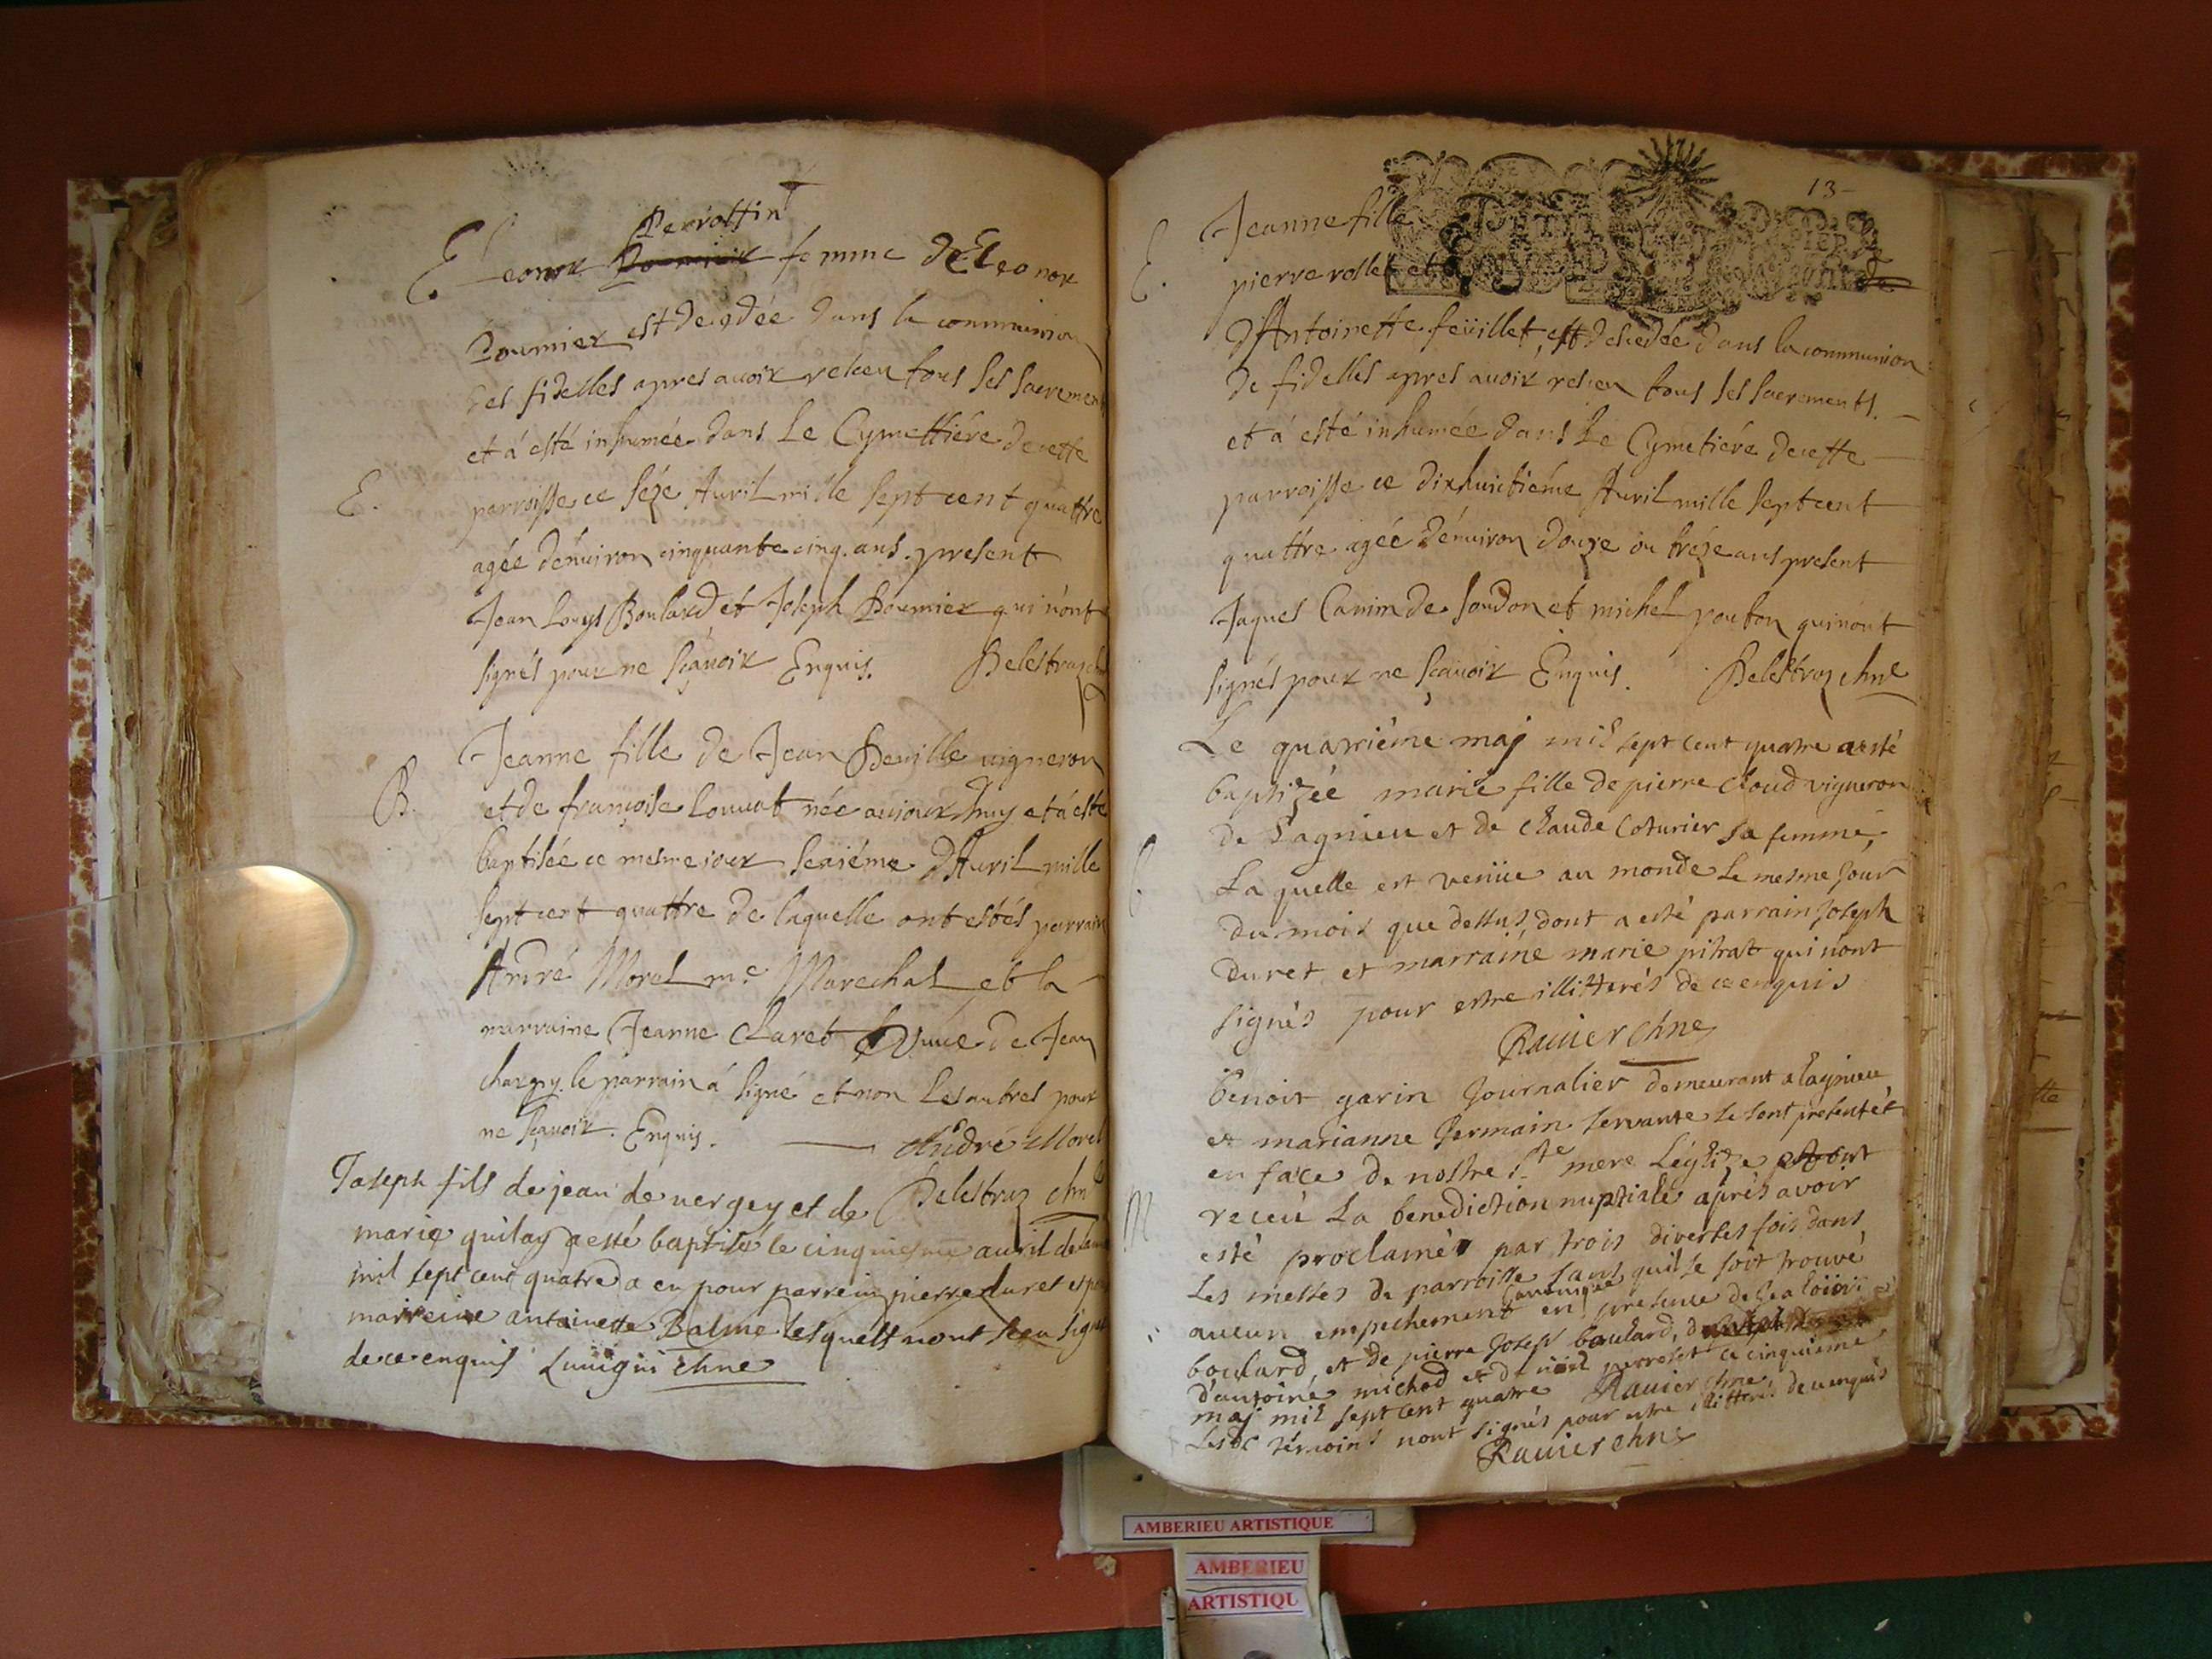 Perrottin
Eleonor femme de Eleonor
Poumier est decedée dans la communion
des fidelles apres auoir receu tous ses sacrement
et à esté inhumée dans le Cymettiére de cette
E. parroisse ce séze Auril mille sept cent quattre
agée dénuiron cinquante cinq ans present
Jean Louys Boulard et Joseph Poumier qui nónt
signés pour ne sçauoir Enquis. Delestraz chne
Jeanne fille de Jean Deuille uigneron
B. et de françoise Louuat née auiourdhuy et à esté
baptisée ce mesme iour seziéme d'Auril mille
sept cent quattre de laquelle ont estés parrain
André Morel me Marechal et la
marraine Jeanne Claret veuue de Jean
chargy. le parrain à signé et non les autres pour
ne sçauoir. Enquis. André Morel
Joseph fils de jean de uergey et de Delestraz chne
marie quilay a esté baptisé le cinquiesme auril de lan
mil sept cent quatre a eu pour parrein pierre duret et pour
marreine antoinette Balme lesquels nont sceu signer
de ce enquis Luuigni chne
13
E. Jeanne fille
pierre rollet et
d'Antoinette feüillet, est decedée dans la communion
de fidelles apres auoir receu tous ses sacrements.
et à esté inhumée dans le Cymetiére de cette
parroisse ce dixhuictiéme Auril mille sept cent
quattre agée dénuiron douze ou tréze ans present
Jaques Canim de soudon et michel pouton qui nónt
signés pour ne sçauoir Enquis. Delestraz chne
Le quatriéme maj mil sept cent quatre a esté
baptizée marie fille de pierre Cloud vigneron
de Lagnieu et de Claude Coturier sa femme,
La quelle est venüe au monde le mesme jour
du mois que dessus, dont a esté parrain joseph
duret et marraine marie pitrat qui nont
signés pour estre illitterés de ce enquis
Rauier chne
benoit garin journalier demeurant a lagnieu
et marianne Germain servante se sont presentés
en face de nostre Ste mere Léglize et ont
M receu La benediction nuptiale aprés avoir
esté proclamés par trois diverses fois dans
Les messes de parroisse sans quil se soit trouvé
aucun empechement canonique en presence de
boulard, et de pierre joseph boulard,
d'antoine michod et de perroset ce cinquieme
maj mil sept cent quatre Rauier chne
Lesds témoins nont signés pour estre illitterés de ce enquis
Rauier chne
AMBERIEU ARTISTIQUE
AMBERIEU
ARTISTIQU